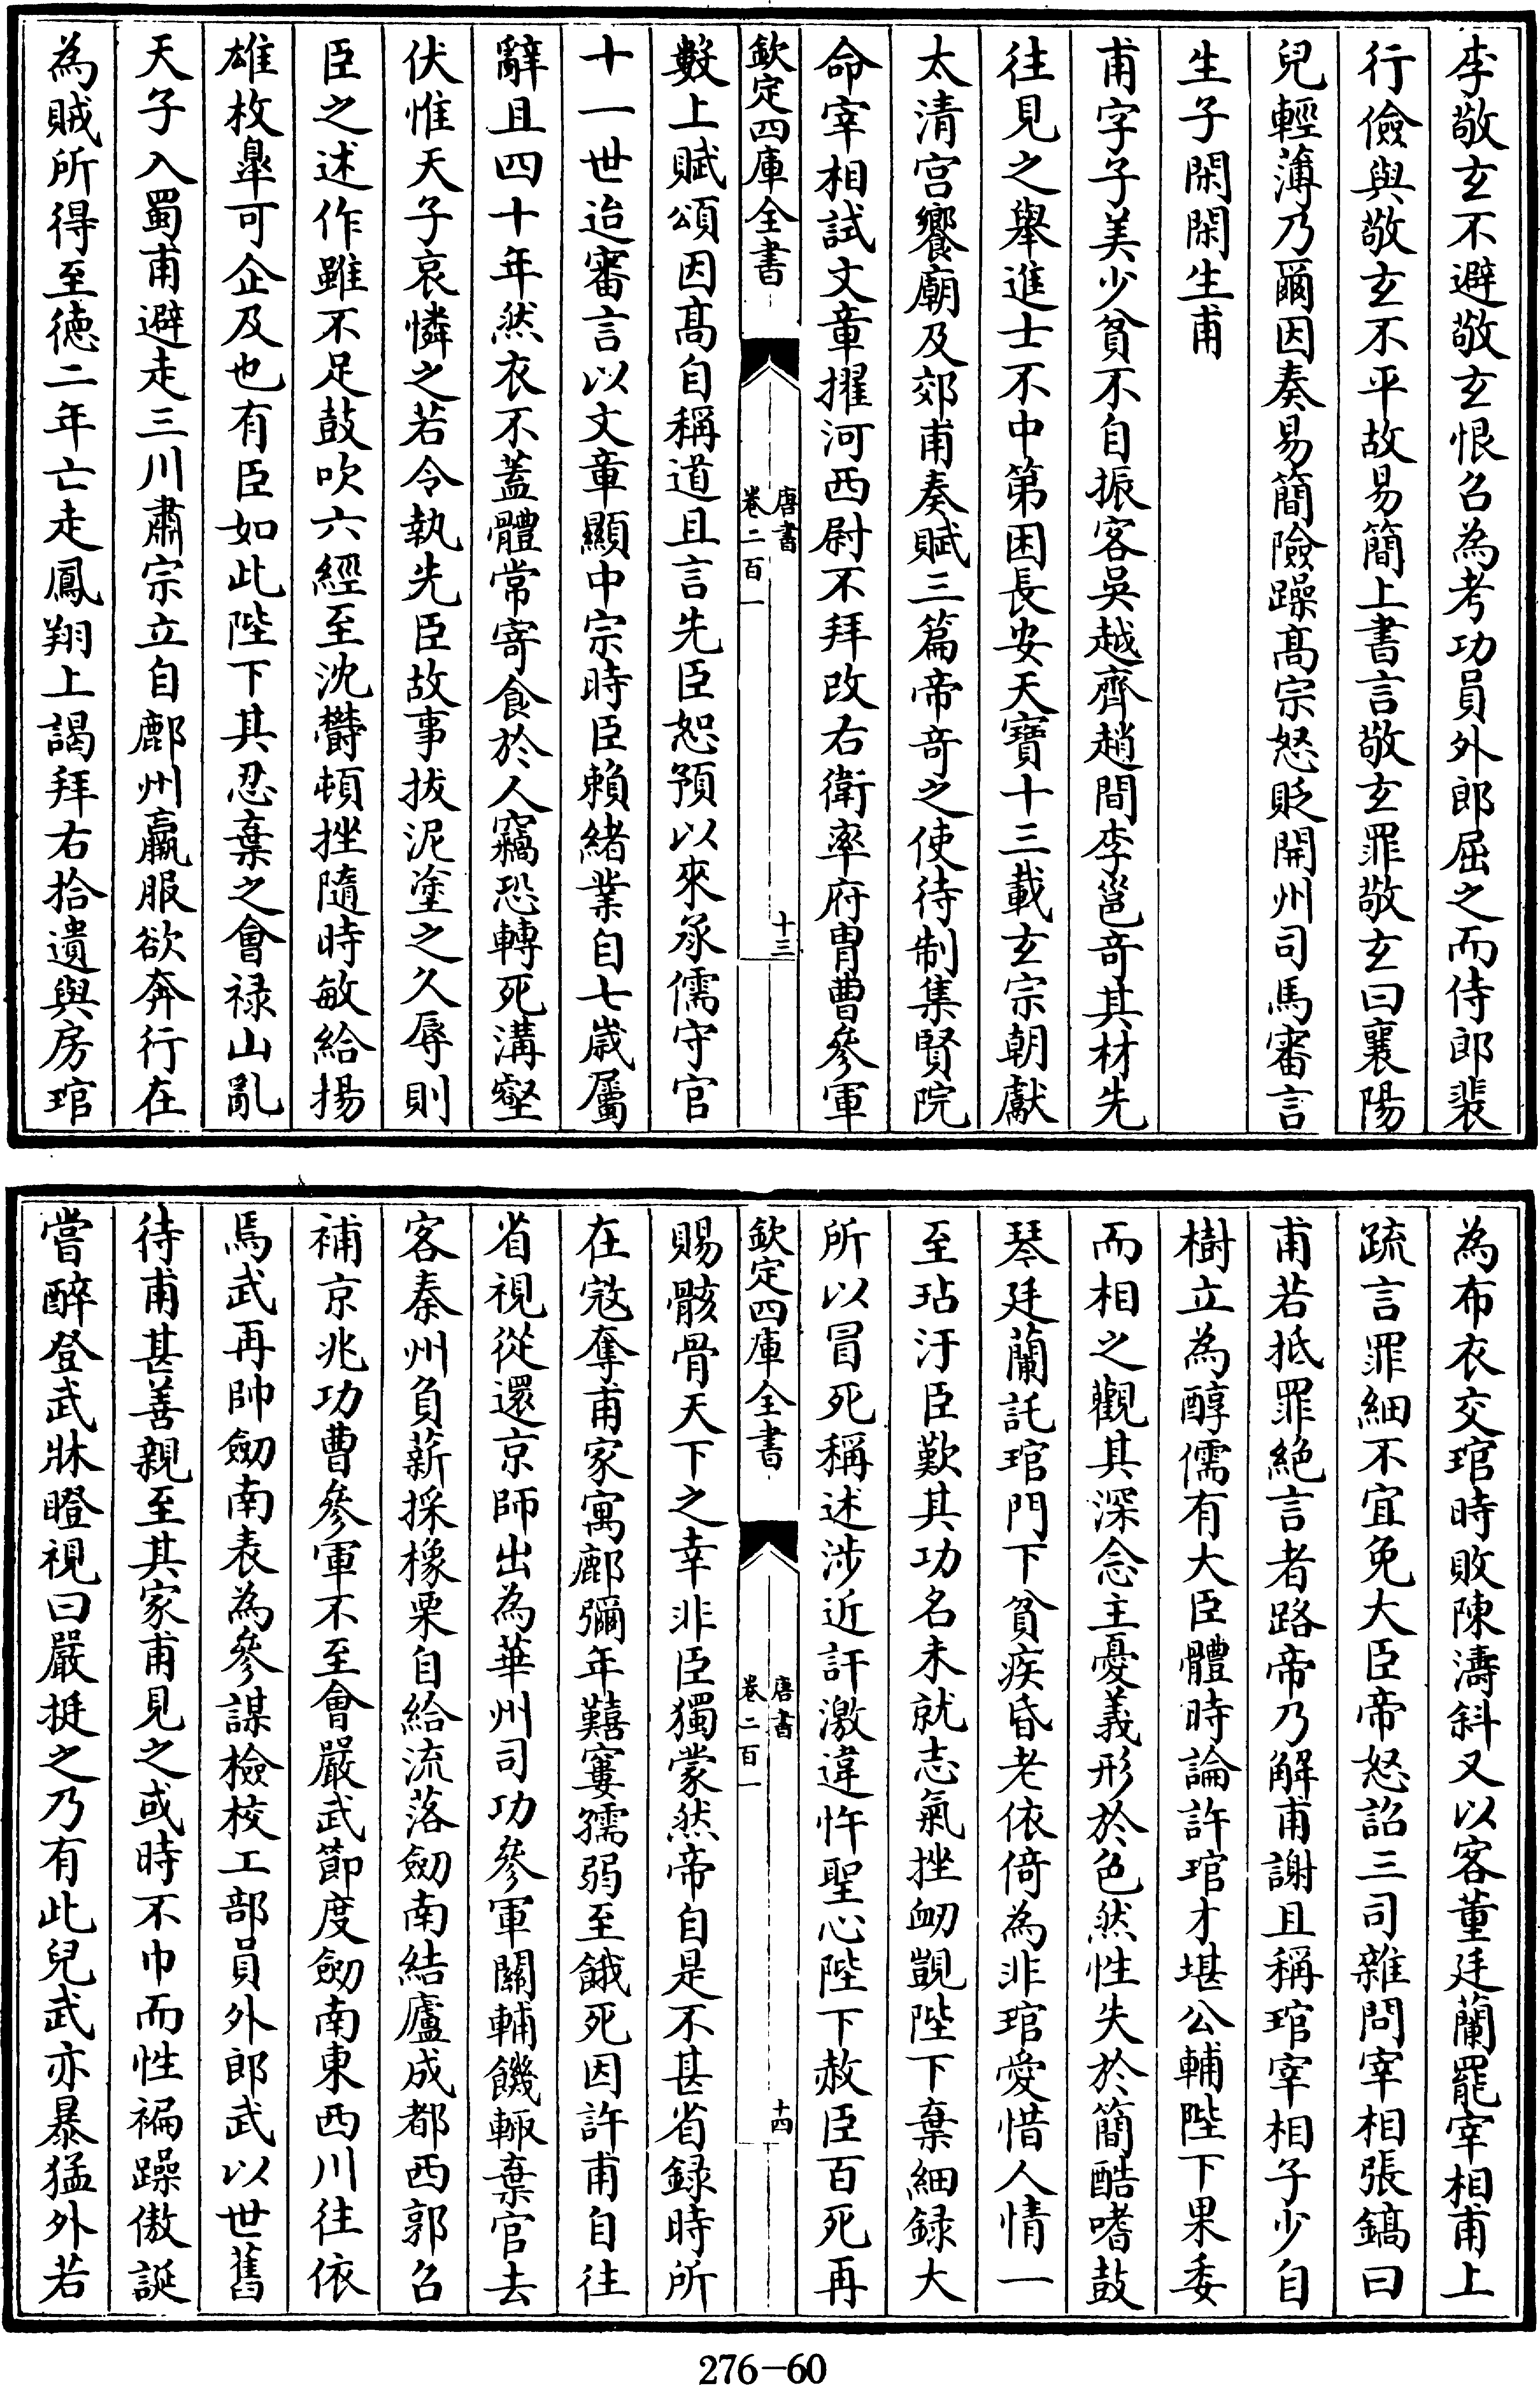 李敬玄不避敬玄恨召為考功員外郎屈之而侍郎裴
行儉與敬玄不平故易簡上書言敬玄罪敬玄曰襄陽
兒輕薄乃爾因奏易簡險躁髙宗怒貶開州司馬審言
生子閑閑生甫
甫字子美少貧不自振客吳越齊趙間李邕竒其材先
往見之舉進士不中第困長安天寶十三載玄宗朝獻
太清宮饗廟及郊甫奏賦三篇帝竒之使待制集賢院
命宰相試文章擢河西尉不拜改右衛率府胄曹參軍
欽定四庫全書
唐書
卷二百一
十三
數上賦頌因髙自稱道且言先臣恕預以來承儒守官
十一世迨審言以文章顯中宗時臣賴緒業自七歲屬
辭且四十年然衣不蓋體常寄食於人竊恐轉死溝壑
伏惟天子哀憐之若令執先臣故事拔泥塗之久辱則
臣之述作雖不足鼓吹六經至沈欝頓挫隨時敏給揚
雄枚臯可企及也有臣如此陛下其忍棄之會禄山亂
天子入蜀甫避走三川肅宗立自鄜州羸服欲奔行在
為賊所得至徳二年亡走鳳翔上謁拜右拾遺與房琯
為布衣交琯時敗陳濤斜又以客董廷蘭罷宰相甫上
疏言罪細不宜免大臣帝怒詔三司雜問宰相張鎬曰
甫若抵罪絶言者路帝乃解甫謝且稱琯宰相子少自
樹立為醇儒有大臣體時論許琯才堪公輔陛下果委
而相之觀其深念主憂義形於色然性失於簡酷嗜鼓
琴廷蘭託琯門下貧疾昏老依倚為非琯愛惜人情一
至玷汙臣歎其功名未就志氣挫衂覬陛下棄細録大
所以冒死稱述涉近訐激違忤聖心陛下赦臣百死再
欽定四庫全書
唐書
卷二百一
十四
賜骸骨天下之幸非臣獨蒙然帝自是不甚省録時所
在寇奪甫家寓鄜彌年艱窶孺弱至餓死因許甫自往
省視從還京師出為華州司功參軍關輔饑輙棄官去
客秦州負薪採橡栗自給流落劒南結廬成都西郭召
補京兆功曹參軍不至會嚴武節度劒南東西川往依
焉武再帥劒南表為參謀檢校工部員外郎武以世舊
待甫甚善親至其家甫見之或時不巾而性褊躁傲誕
嘗醉登武牀瞪視曰嚴挺之乃有此兒武亦暴猛外若
276-60